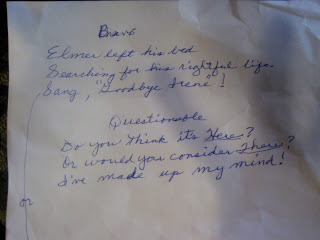 Brave
Elmer left his bed
Searching for his rightful life.
Sang, "Goodbye Irene"!
Questionable
Do you think its Here?
Or would you consider There?
I've made up my mind!
or